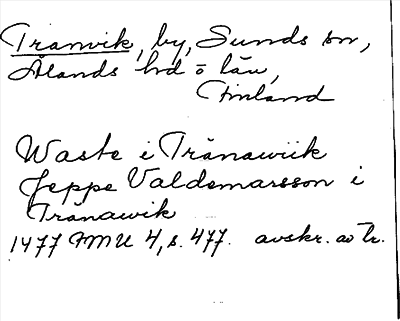 Tranvik, by, Sunds sn,
Ålands hd o län,
Finland
Waste i Tränawiik
Jeppe Valdemarsson i
Tränawik
1477 FMU 4, s. 477. avskr. av tr.